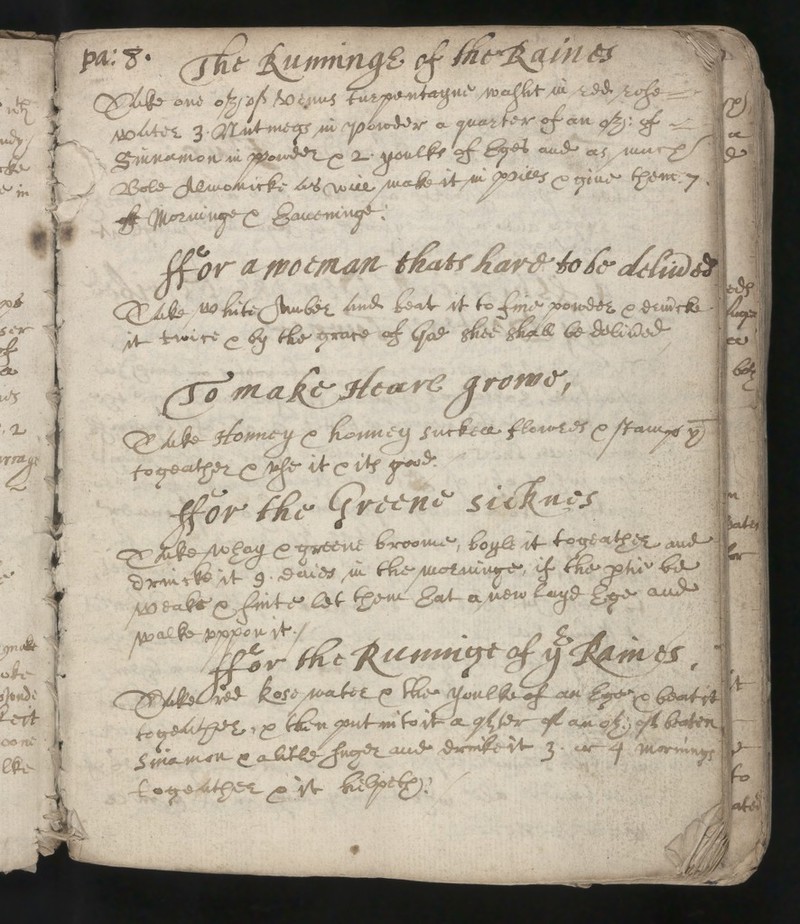 pa: 8.
The Runninge of the Raines
Take one oz: of Venus turpentayne washt in red rose
water 3. Nutmegs in powder a quarter of an oz: of
Sinnamon in powder & 2 youlks of Eges and as much
Bole Armonicke as will make it in pilles & give them 7.
Morninge & Eaveninge:
ffor a woeman thats hard to be delivd
Take white Amber and beat it to fine powder & drincke
it twice & by the grace of God shee shall be delived
To make Heare growe,
Take Honney & honney suckell flowres & stampe ym
togeather & use it & its good.
ffor the Greene sicknes
Take whay & greene broome, boyle it togeather and
drincke it 9. daies in the morninge, if the ptie be
weake & fainte let them Eat a new layd Ege and
walke uppon it:/
ffor the Runninge of ye Raines,
Take red Rose water & the youlke of an Ege & beat it
togeather, & then put into it a qter of an oz: of beaten
Sinamon & a litle suger and drinke it 3. or 4 mornings
togeather & it helpeth: